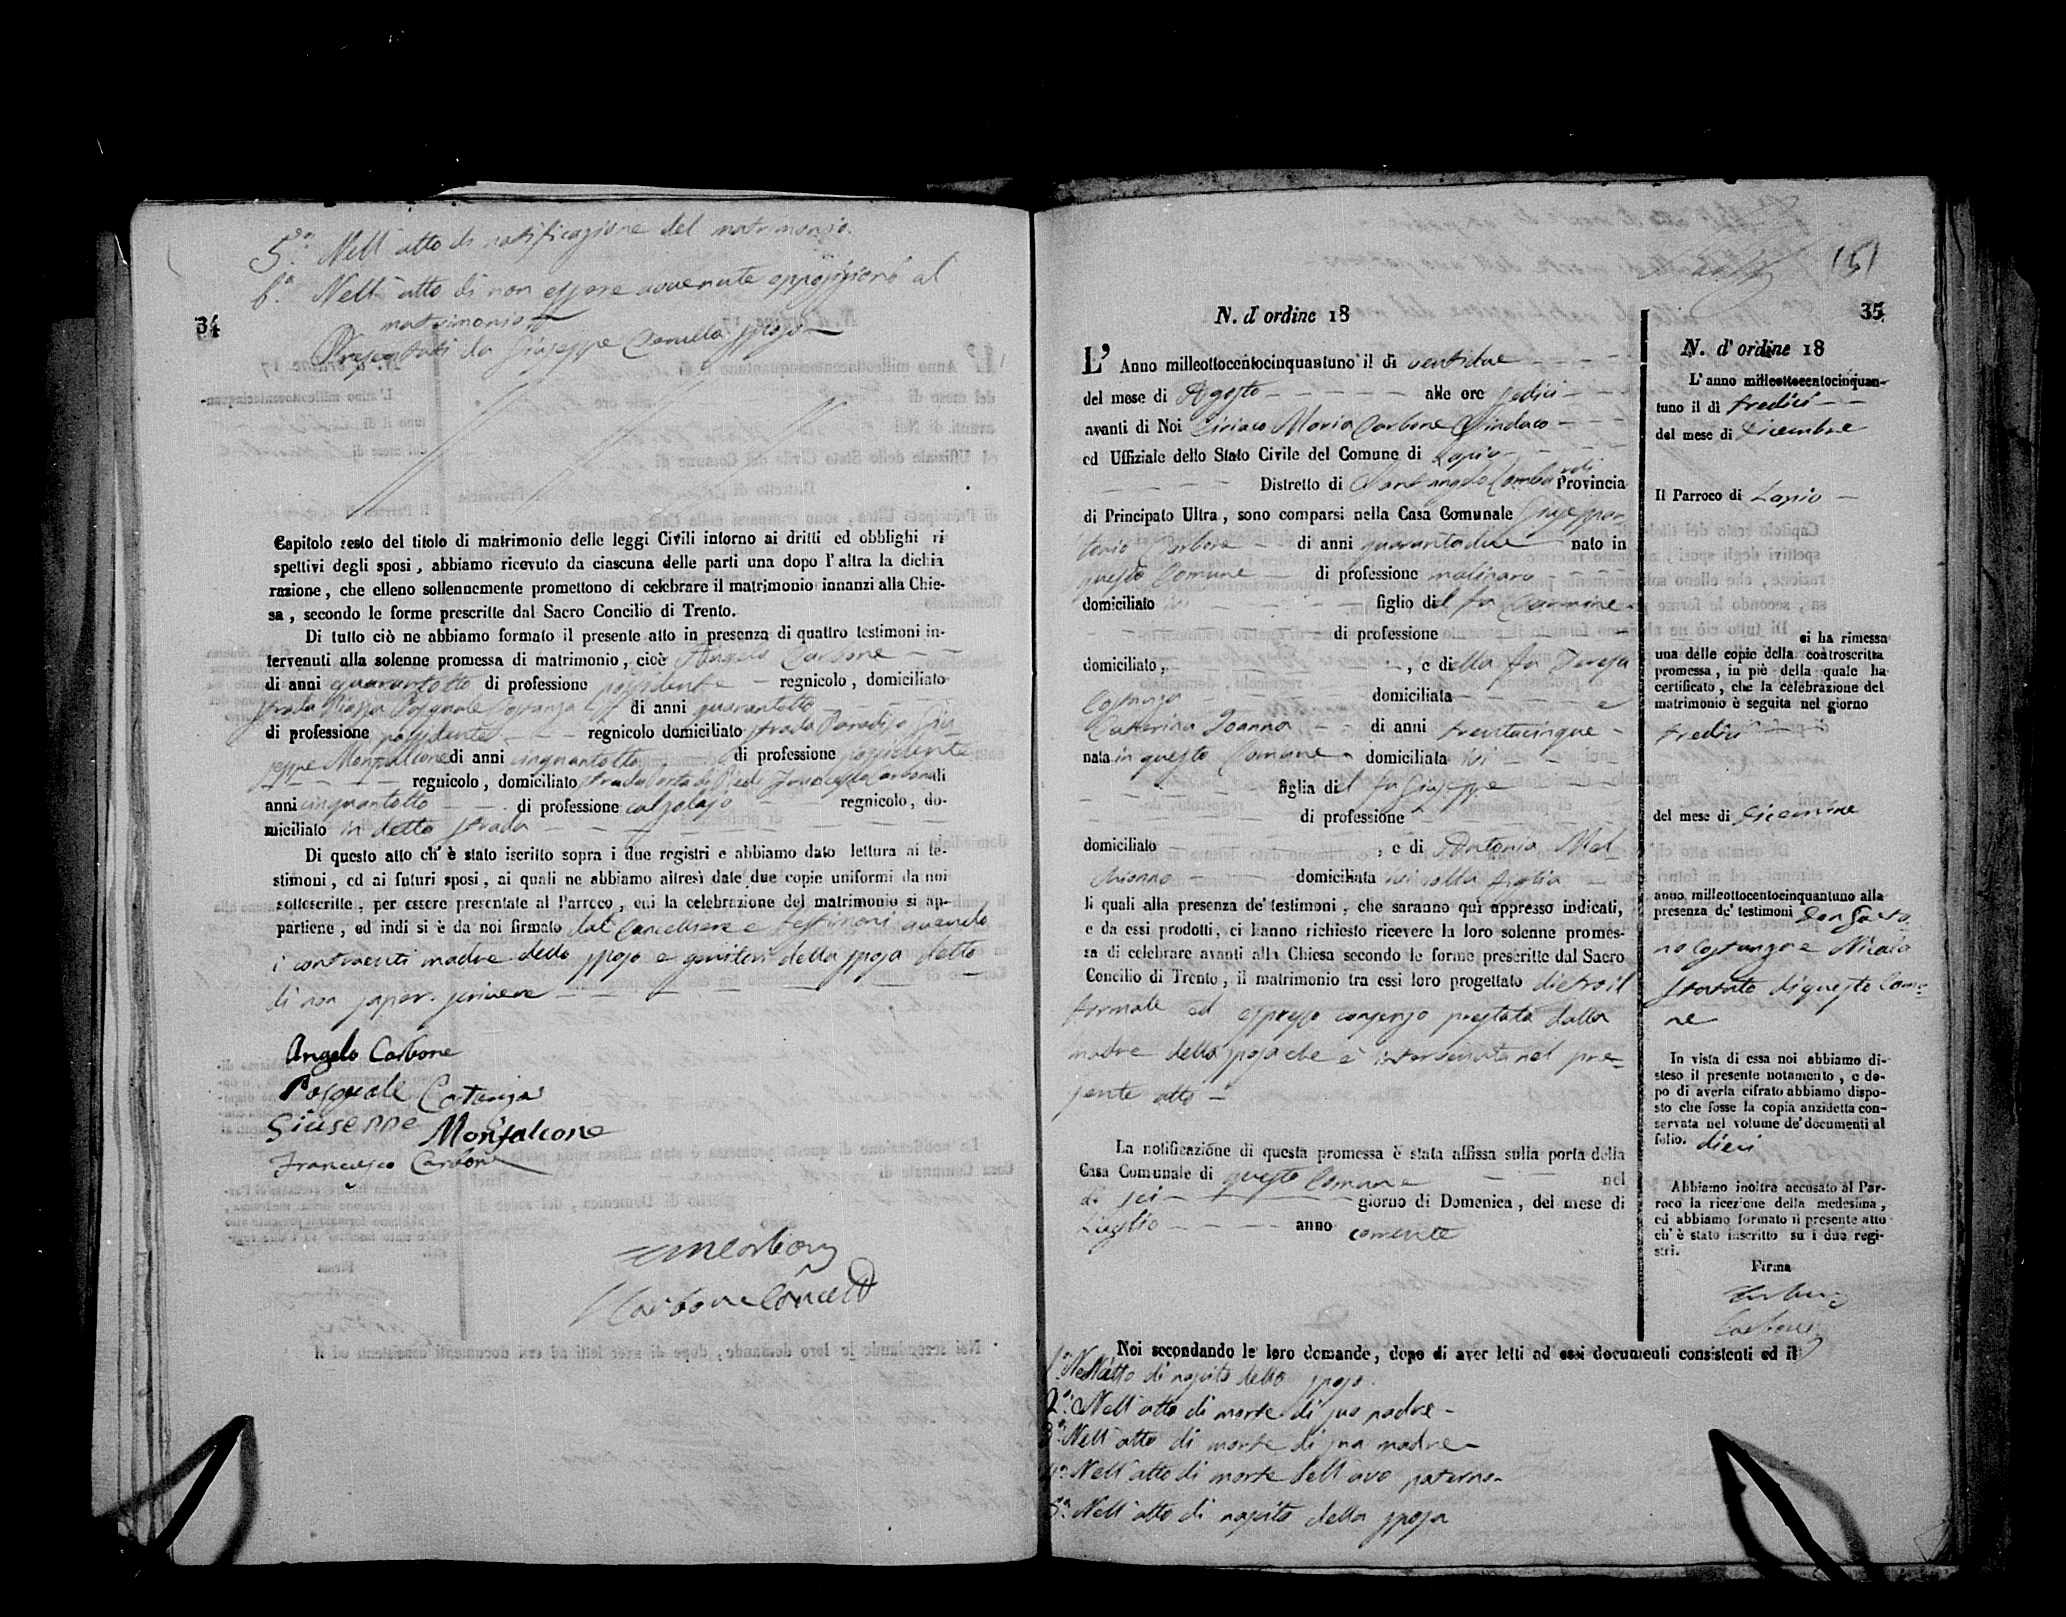 5.° Nell'atto di notificazione del matrimonio.
6.° Nell'atto di non essere avvenute opposizioni al
matrimonio
34
Presentati da Giuseppe sposo
Capitolo sesto del titolo di matrimonio delle leggi Civili intorno ai dritti ed obblighi ri
spettivi degli sposi, abbiamo ricevuto da ciascuna delle parti una dopo l'altra la dichia
razione, che elleno sollennemente promettono di celebrare il matrimonio innanzi alla Chie-
sa, secondo le forme prescritte dal Sacro Concilio di Trento.
Di tutto ciò ne abbiamo formato il presente atto in presenza di quattro testimoni in-
tervenuti alla solenne promessa di matrimonio, cioè Angelo Carbone
di anni quarantotto di professione possidente regnicolo, domiciliato
strada Piazza Pasquale Costanza di anni quarantotto
di professione possidente regnicolo domiciliato strada Paradiso Giu
seppe Monfalcone di anni cinquantotto di professione possidente
regnicolo, domiciliato strada Francesco Carbone di
anni cinquantotto di professione calzolajo regnicolo, do-
miciliato in detta strada
Di questo atto ch'è stato iscritto sopra i due registri e abbiamo dato lettura ai te-
stimoni, ed ai futuri sposi, ai quali ne abbiamo altresì date due copie uniformi da noi
sottoscritte, per essere presentate al Parroco, cui la celebrazione del matrimonio si ap-
partiene, ed indi si è da noi firmato dal Cancelliere e testimoni avendo
i contraenti madre dello sposo e genitori della sposa detto
di non saper scrivere
Angelo Carbone
Pasquale Costanza
Giuseppe Monfalcone
Francesco Carbone
Carbone
Carbone Cancell
(5)
35
N. d'ordine 18
L'Anno milleottocentocinquantuno il di ventidue
del mese di Agosto alle ore sedici
avanti di Noi Ciriaco Maria Carbone Sindaco
ed Uffiziale dello Stato Civile del Comune di Lapio
Distretto di Santangelo Lombardi Provincia
di Principato Ultra, sono comparsi nella Casa Comunale Giuseppan-
tonio Carbone di anni quarantadue nato in
questo Comune di professione molinaro
domiciliato ivi figlio del fu Carmine
di professione
domiciliato, , e della fu Teresa
Costanza domiciliata e
Catterina Joanna di anni trentacinque
nata in questo Comune domiciliata ivi
figlia del fu Giuseppe
di professione
domiciliato , e di Antonia Mel
chionno domiciliata ivi colla figlia
li quali alla presenza de' testimoni, che saranno quì appresso indicati,
e da essi prodotti, ci hanno richiesto ricevere la loro solenne promes-
sa di celebrare avanti alla Chiesa secondo le forme prescritte dal Sacro
Concilio di Trento, il matrimonio tra essi loro progettato dietro il
formale ed espresso consenso prestato dalla
madre della sposa che è intervenuta nel pre-
sente atto
La notificazione di questa promessa è stata affissa sulla porta della
Casa Comunale di questo Comune nel
di sei giorno di Domenica, del mese di
Luglio anno corrente
Noi secondando le loro demande, dopo di aver letti ad essi documenti consistenti ed il
1.° Nell'atto di nascita dello sposo.
2.° Nell'atto di morte di suo padre
3.° Nell'atto di morte di sua madre
4.° Nell'atto di morte dell'avo paterno
5.° Nell'atto di nascita della sposa
N. d'ordine 18
L'anno milleottocentocinquan-
tuno il dì tredici
del mese di Dicembre
Il Parroco di Lapio
ci ha rimessa
una delle copie della controscritta
promessa, in piè della quale ha
certificato, che la celebrazione del
matrimonio è seguita nel giorno
tredici
del mese di Dicembre
anno milleottocentocinquantuno alla
presenza de' testimoni Don Gaeta-
no Costanza e Nicola
di questo Comu-
ne
In vista di essa noi abbiamo di-
steso il presente notamento, e do-
po di averla cifrato abbiamo dispo-
sto che fosse la copia anzidetta con-
servata nel volume de' documenti al
folio. dieci
Abbiamo inoltre accusato al Par-
roco la ricezione della medesima,
ed abbiamo formato il presente atto
ch'è stato inscritto su i due regi-
stri.
Firma
Carbone
Carbone